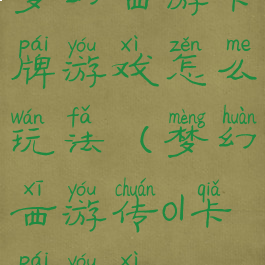 梦幻西游卡
pái yóu xì zěn me
牌游戏怎么
wán fǎ mèng huàn
玩法(梦幻
xī yóu chuán qiǎ
西游传01卡
pái yóu xì